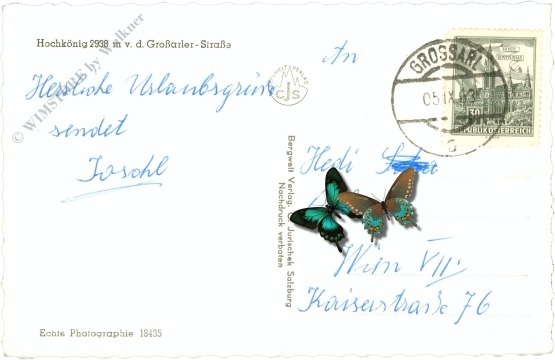 Hochkönig 2938 m v. d. Großarler-Straße
© WIMSTORE by Walkner
Herzliche Urlaubsgrüße
sendet
Joschl
An
Hedi
Wien VII.
Kaiserstraße 76
GROSSARL
05.IX.63
WIEN
30
REPUBLIK ÖSTERREICH
BERGWELT VERLAG
CJS
Bergwelt Verlag, C. Jurischek Salzburg
Nachdruck verboten
Echte Photographie 18435